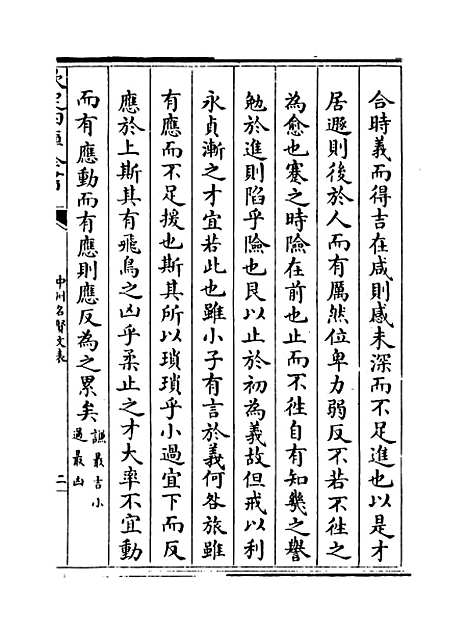 合時義而得吉在咸則感未深而不足進也以是才
居遯則後於人而有厲然位卑力弱反不若不徃之
為愈也蹇之時險在前也止而不徃自有知幾之譽
勉於進則陷乎險也艮以止於初為義故但戒以利
永貞漸之才宜若此也雖小子有言於義何咎旅雖
有應而不足援也斯其所以瑣瑣乎小過宜下而反
應於上斯其有飛鳥之凶乎柔止之才大率不宜動
而有應動而有應則應反為之累矣
謙最吉小
過最凶
欽定四庫全書
中州名賢文表
二